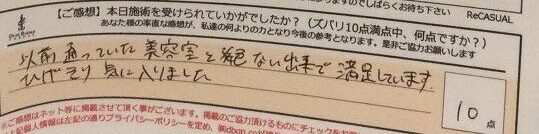 ますのでしばらくお待ち下さい ReCASUAL
【ご感想】本日施術を受けられていかがでしたか？（ズバリ10点満点中、何点ですか？）
あなた様の率直な感想が、私達の何よりの力となり今後の参考となります。是非ご協力お願いします
以前通っていた美容室と変らない出来で満足しています。
ひげそり気に入りました
10点
※ご感想はネット等に掲載させて頂く事がございます。掲載のご協力頂けるものにチェックをお
記個人情報は左記の通りプライバシーポリシーを定め、